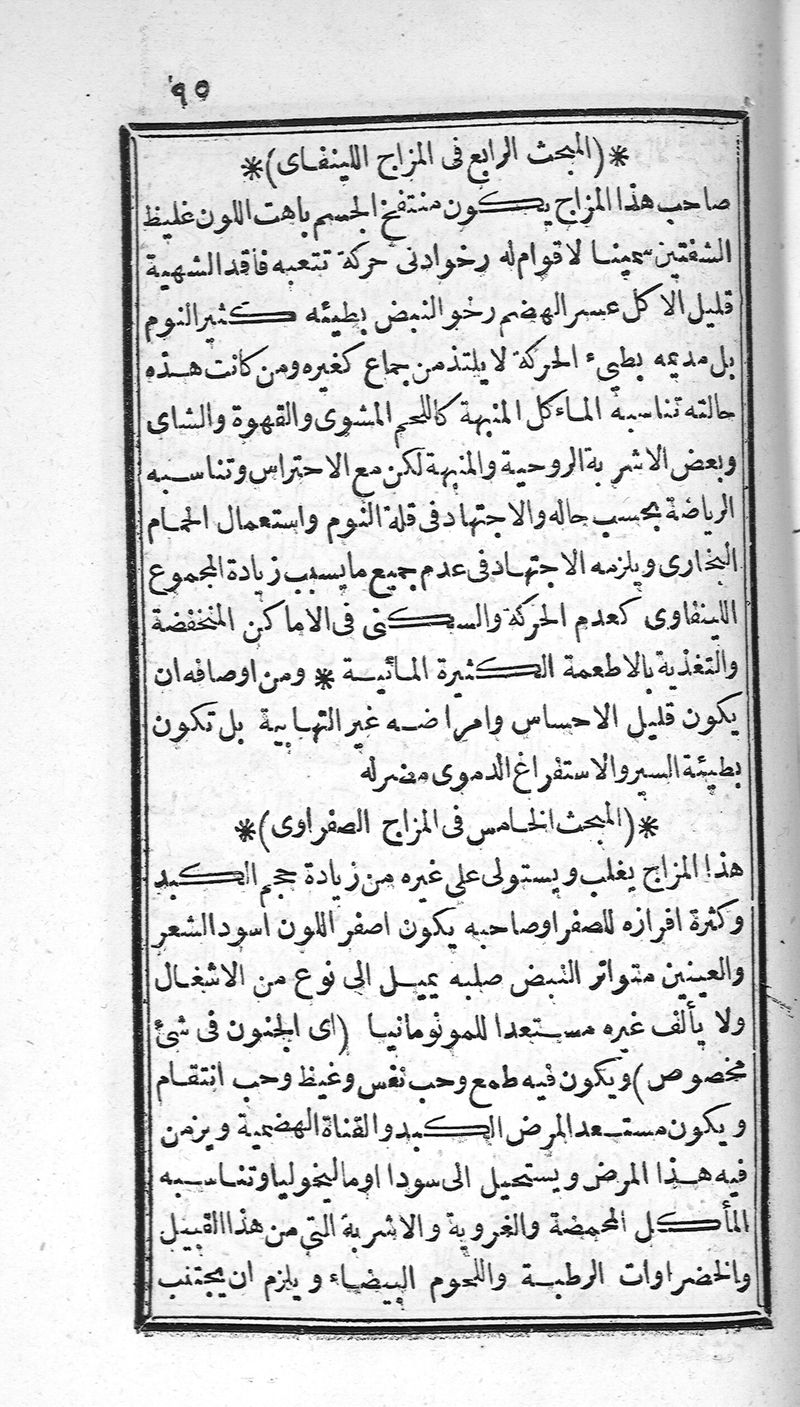 ٩٥
*(المبحث الرابع فى المزاج اللينفاى)*
صاحب هذا المزاج يكون منتفخ الجسم باهت اللون غليظ
الشفتين سمينا لا قوام له رخوادنى حركة تتعبه فاقد الشهية
قليل الاكل عسر الهضم رخو النبض بطيئه كثير النوم
بل مديمه بطىء الحركة لا يلتذ من جماع كغيره ومن كانت هذه
حالته تناسبه الماءكل المنبهة كاللحم المشوى والقهوة والشاى
وبعض الاشربة الروحية والمنبهة لكن مع الاحتراس وتناسبه
الرياضة بحسب حاله والاجتهاد فى قلة النوم واستعمال الحمام
البخارى ويلزمه الاجتهاد فى عدم جميع ما يسبب زيادة المجموع
اللينفاوى كعدم الحركة والسكنى فى الاماكن المنخفضة
والتغذية بالاطعمة الكثيرة المائية * ومن اوصافه ان
يكون قليل الاحساس وامراضه غير التهابية بل تكون
بطيئة السير والاستفراغ الدموى مضر له
*(المبحث الخامس فى المزاج الصفراوى)*
هذا المزاج يغلب ويستولى على غيره من زيادة حجم الكبد
وكثرة افرازه للصفرا وصاحبه يكون اصفر اللون اسود الشعر
والعينين متواتر النبض صلبه يميل الى نوع من الاشغال
ولا يألف غيره مستعدا للمونومانيا (اى الجنون فى شئ
مخصوص) ويكون فيه طمع وحب نفس وغيظ وحب انتقام
ويكون مستعد المرض الكبد والقناة الهضمية ويزمن
فيه هذا المرض ويستحيل الى سودا او ماليخوليا وتناسبه
المأكل المحمضة والغروية والاشربة التى من هذا القبيل
والخضراوات الرطبة واللحوم البيضاء ويلزم ان يجتنب